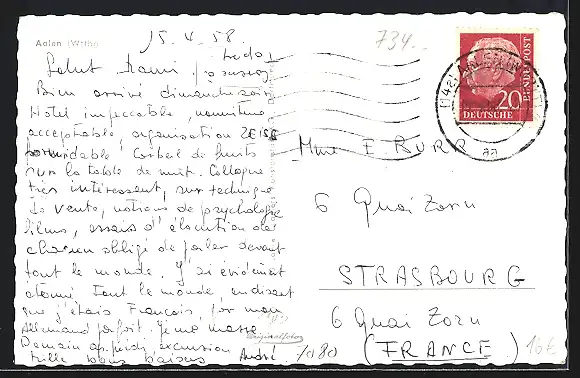 Aalen (Wrtbg)
15.4.58
734.-
Salut
Bien arrivé dimanche soir
Hotel impeccable, nourriture
acceptable, organisation ZEISS
formidable, Corbeil de fruits
sur la table de nuit. Colloque
très intéressant, sur technique
de vente, notions de psychologie
films, essais d'élocution de
chacun obligé de parler devant
tout le monde. J'y ai évidemment
étonné tout le monde en disant
que j'étais Français, par mon
Allemand parfait. Je me marre
Demain ap. midi excursion
Mille bons baisers André
Originalfoto
7080
Mme E BURR
6 Quai Zorn
STRASBOURG
6 Quai Zorn
(FRANCE)
16€
20
DEUTSCHE
BUNDESPOST
aa